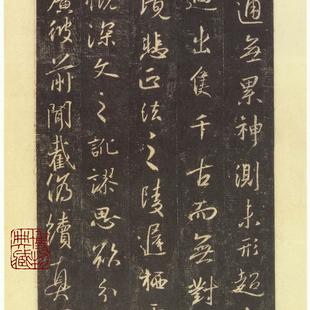 通無累神測未形超
迥出隻千古而無對
境悲正法之陵遲栖
慨深文之訛謬思欲分
廣彼前聞截偽續真